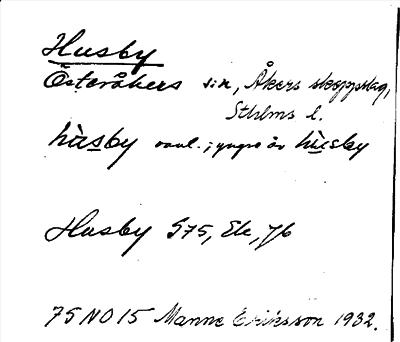 Husby
Österåkers sn, Åkers skeppslag,
Sthlms l.
hùsby vanl.; yngre äv hùsby
Husby S75, Ek, Jb
75 NO 15 Manne Eriksson 1932.